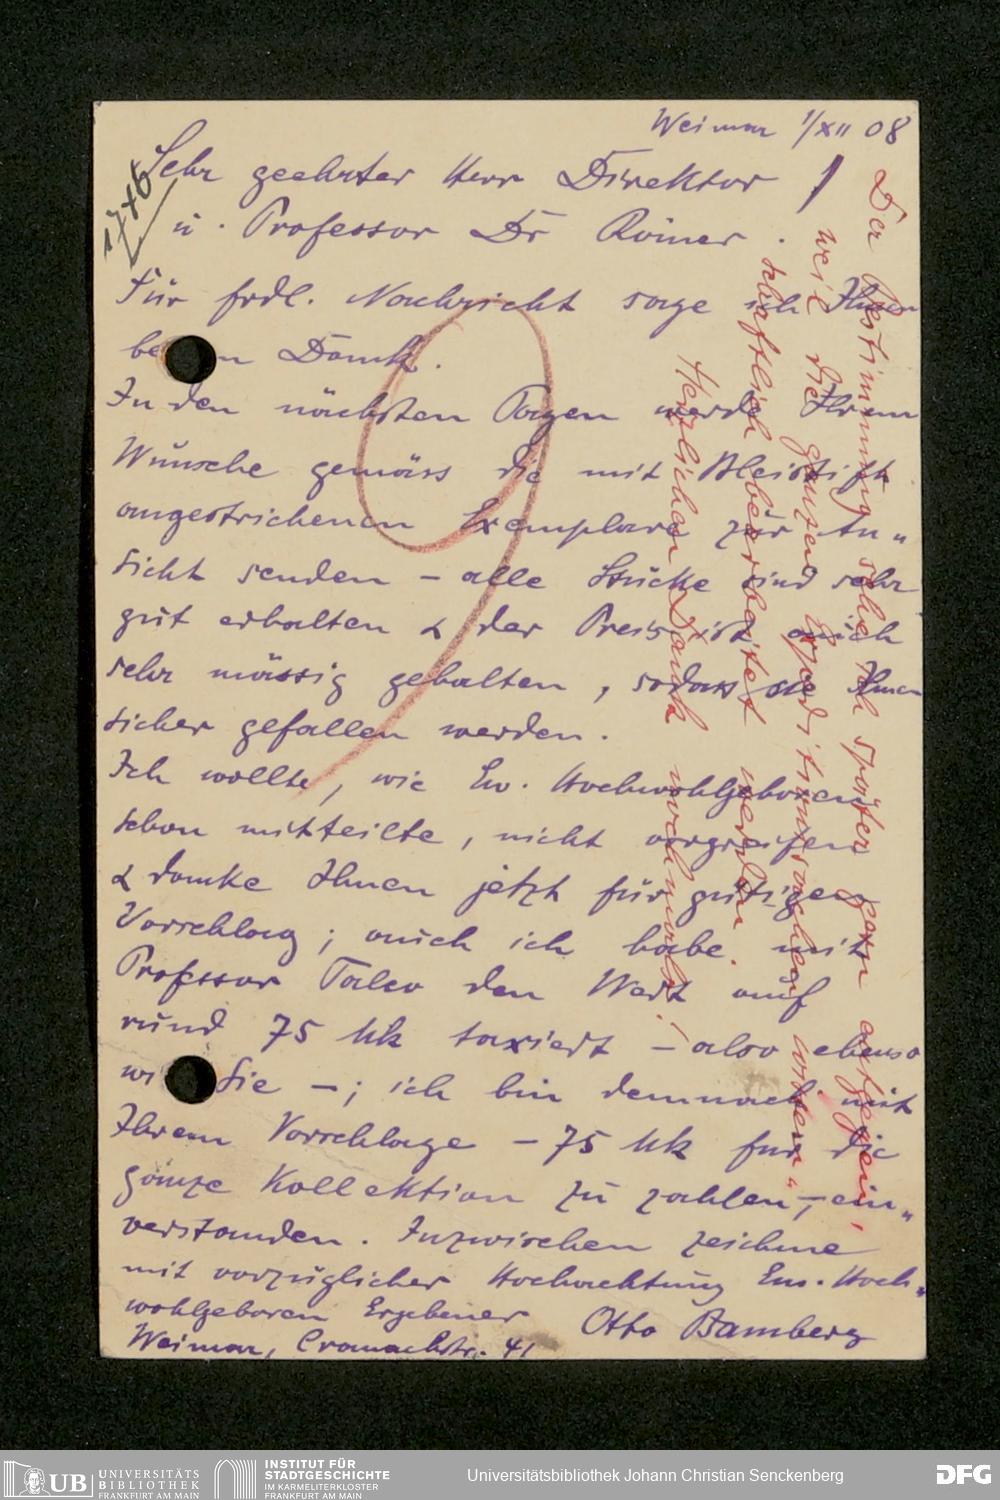 Weimar 1/XII 08
1746
Sehr geehrter Herr Direktor
u. Professor Dr Römer.
Für frdl. Nachricht sage ich Ihnen
be n Dank.
In den nächsten Tagen werde Ihrem
Wunsche gemäss die mit Bleistift
angestrichenen Exemplare zur An„
sicht senden – alle Stücke sind sehr
gut erhalten & der Preis ist auch
sehr mässig gehalten, sodass sie Ihnen
sicher gefallen werden.
Ich wollte, wie Ew. Hochwohlgeboren
schon mitteilte, nicht vorgreifen
& danke Ihnen jetzt für gütigen
Vorschlag; auch ich habe mit
Professor den Wert auf
rund 75 Mk taxiert – also ebenso
wi Sie –; ich bin demnach mit
Ihrem Vorschlage – 75 Mk für die
ganze Kollektion zu zahlen –, ein„
verstanden. Inzwischen zeichne
mit vorzüglicher Hochachtung Ew. Hoch„
wohlgeboren Ergebener Otto Bamberg
Weimar, Cranachstr. 41
Der Bestimmung sehe ich später gern entgegen,
weil die ganzen wissen„
schaftlich bearbeitet werden.
Herzlichen Dank nochmals!
UB UNIVERSITÄTS
BIBLIOTHEK
FRANKFURT AM MAIN
INSTITUT FÜR
STADTGESCHICHTE
IM KARMELITERKLOSTER
FRANKFURT AM MAIN
Universitätsbibliothek Johann Christian Senckenberg
DFG